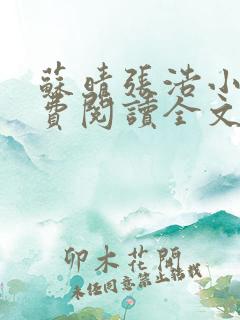 蘇晴張浩小
費閱讀全文
卯木花開
未經同意禁止轉載